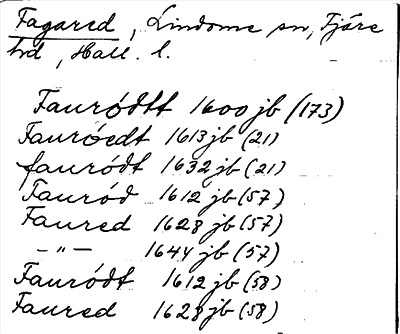 Fagared, Lindome sn, Fjäre
hd, Hall. l.
Fauródtt 1600 jb (173)
Fauróedt 1613 jb (21)
fauródt 1632 jb (21)
Fauród 1612 jb (57)
Faured 1628 jb (57)
– " – 1644 jb (57)
Fauródt 1612 jb (58)
Faured 1628 jb (58)